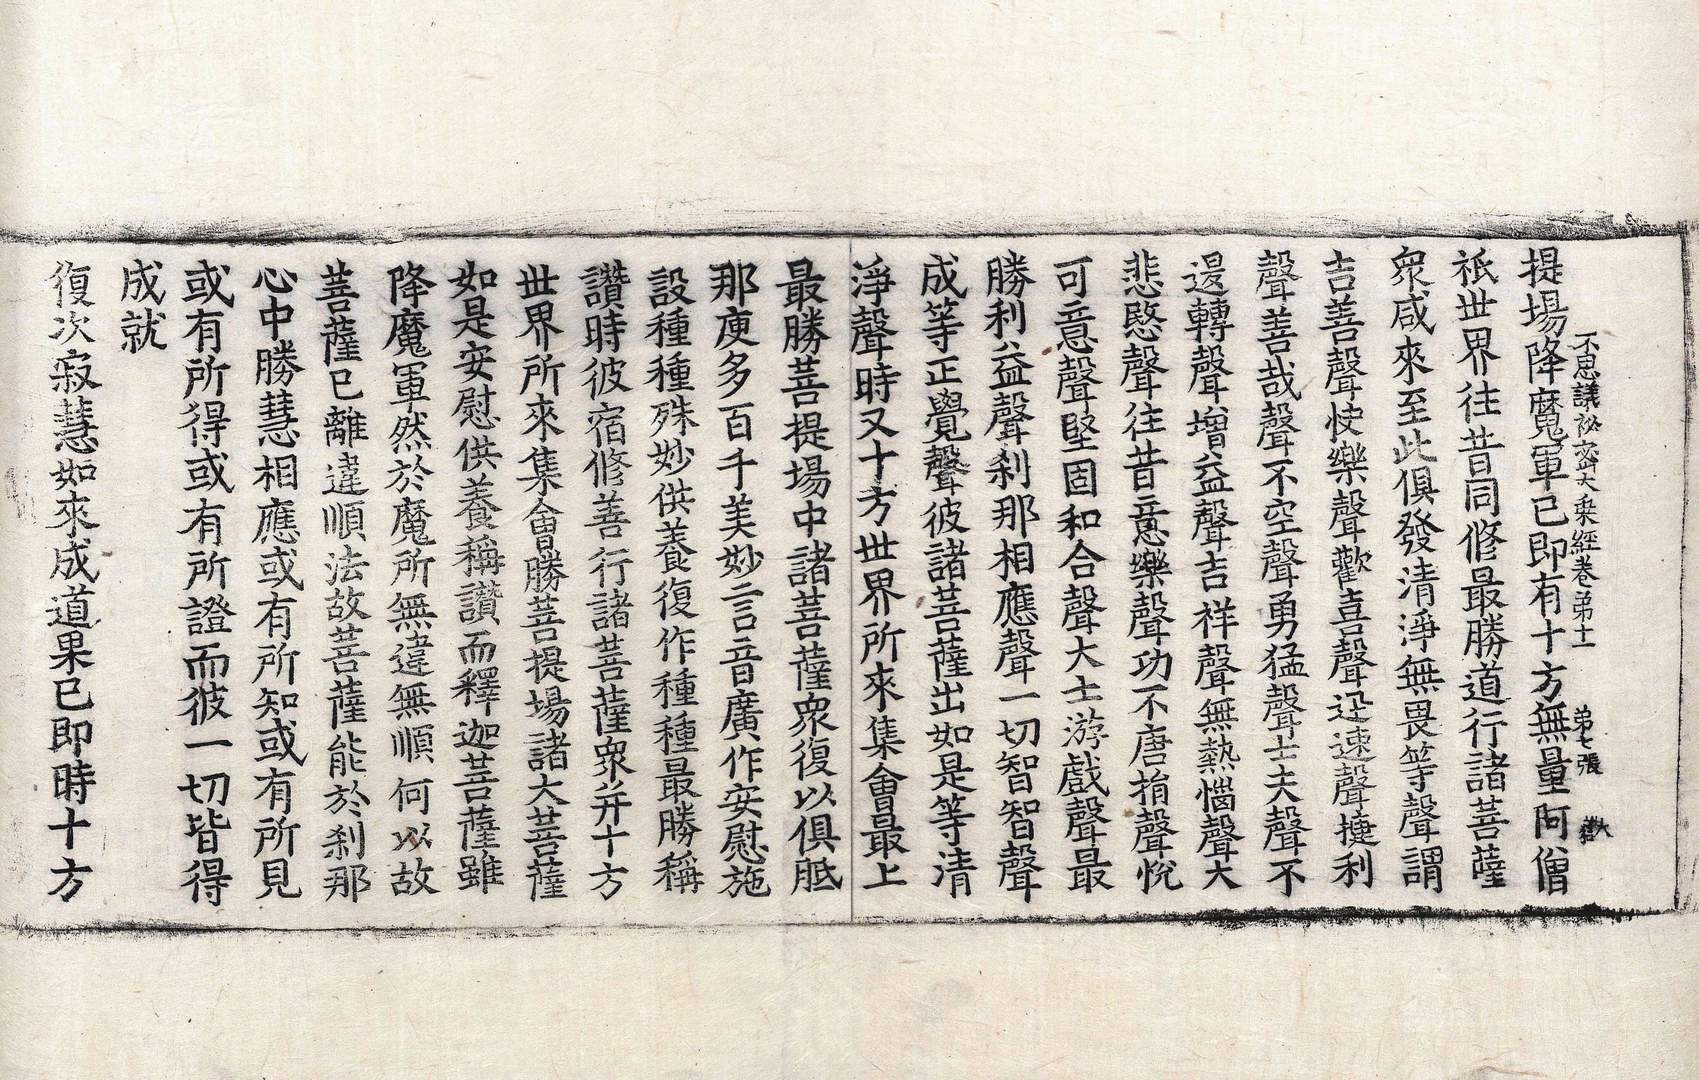 不思議祕密大乘經卷第十一　第七張　歡
提場降魔軍已即有十方無量阿僧
祇世界往昔同修最勝道行諸菩薩
衆咸來至此俱發清淨無畏等聲謂
吉善聲快樂聲歡喜聲迅速聲捷利
聲善哉聲不空聲勇猛聲士夫聲不
退轉聲增益聲吉祥聲無熱惱聲大
悲愍聲往昔意樂聲功不唐捐聲悅
可意聲堅固和合聲大士游戲聲最
勝利益聲刹那相應聲一切智智聲
成等正覺聲彼諸菩薩出如是等清
淨聲時又十方世界所來集會最上
最勝菩提場中諸菩薩衆復以俱胝
那庾多百千美妙言音廣作安慰施
設種種殊妙供養復作種種最勝稱
讚時彼宿修善行諸菩薩衆并十方
世界所來集會勝菩提場諸大菩薩
如是安慰供養稱讚而釋迦菩薩雖
降魔軍然於魔所無違無順何以故
菩薩已離違順法故菩薩能於刹那
心中勝慧相應或有所知或有所見
或有所得或有所證而彼一切皆得
成就
復次寂慧如來成道果已即時十方